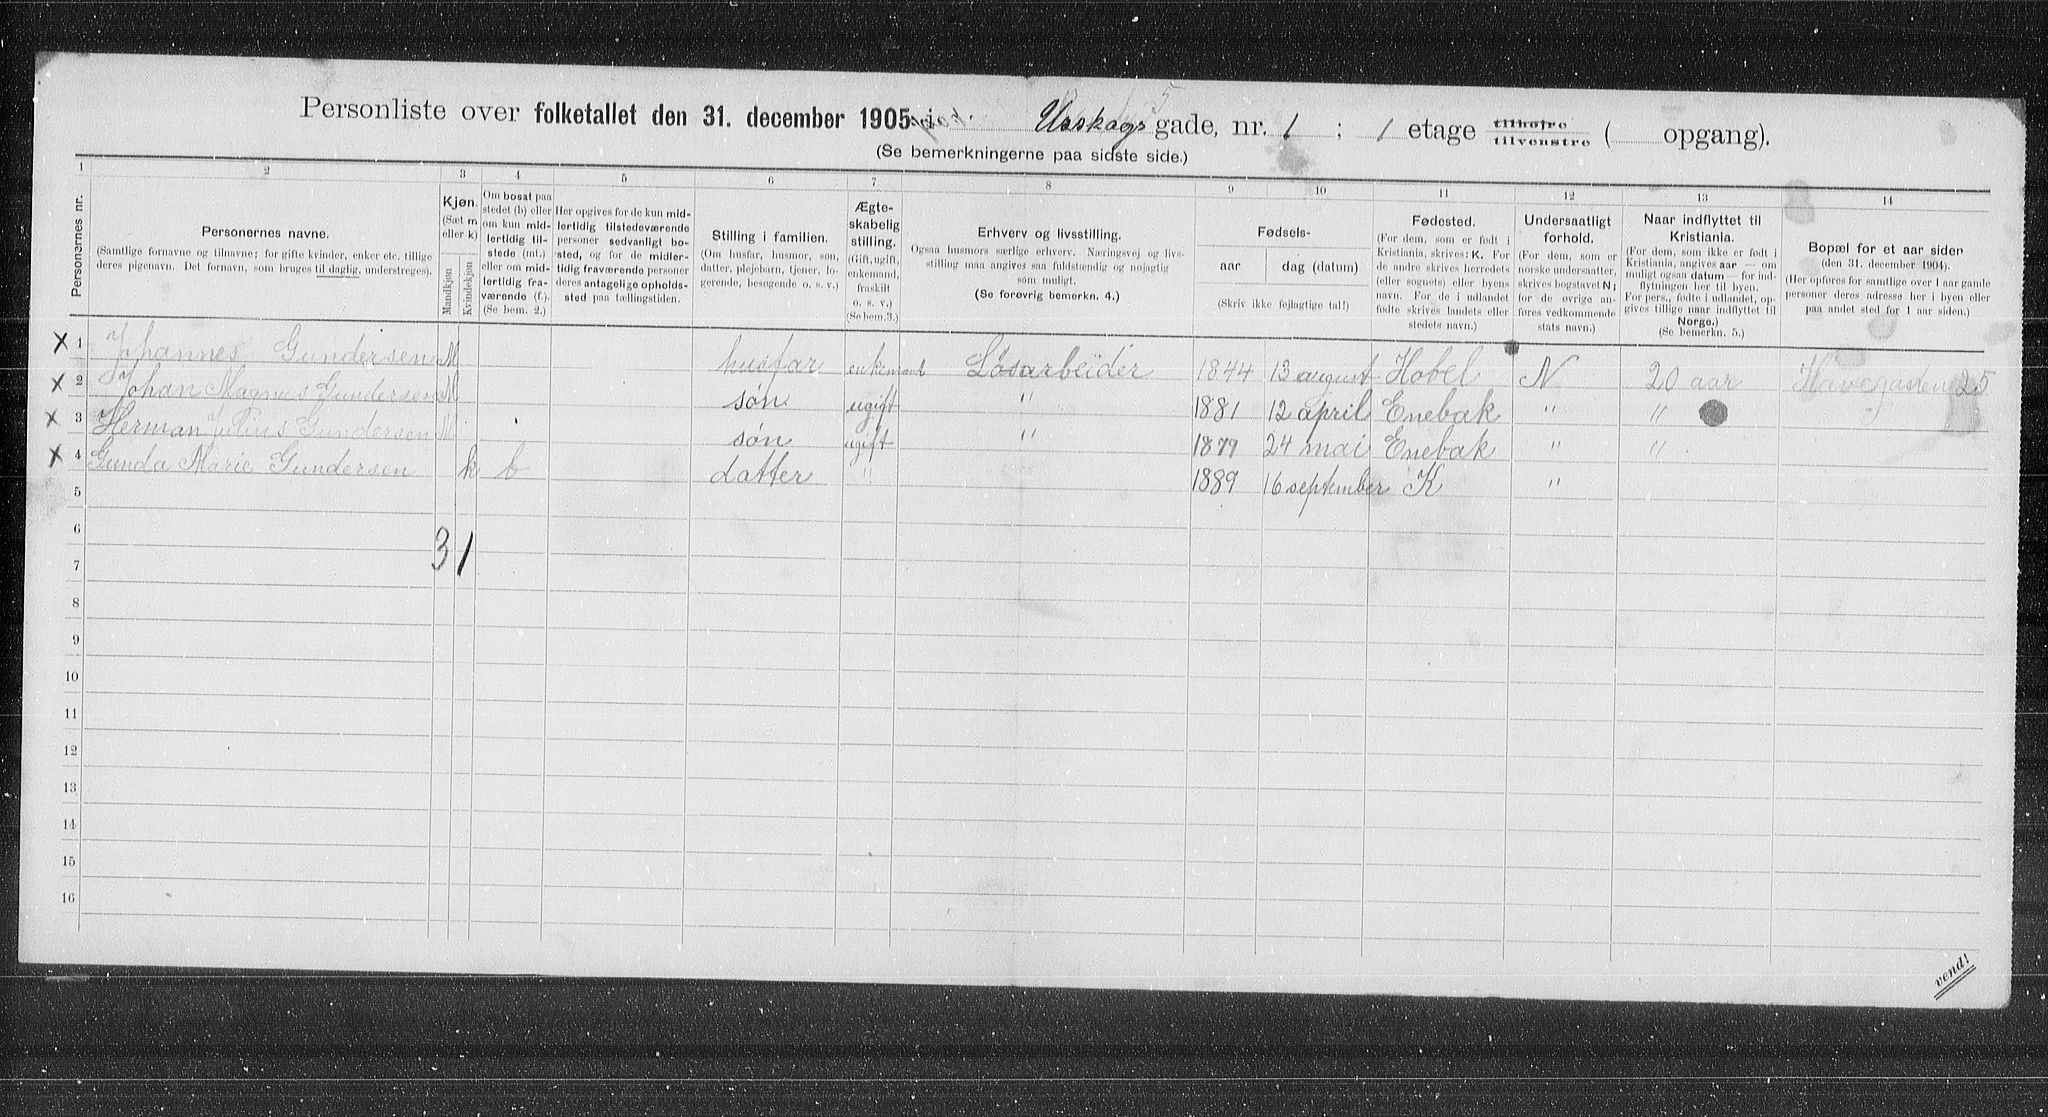 Personliste over folketallet den 31. december 1905 i Uraskogs gade, nr. 1 ; 1 etage tilhøjre tilvenstre ( opgang).
(Se bemerkningerne paa sidste side.)
1 2 3 4 5 6 7. 8 9 10 11 12 13 14
Personernes nr.
Personernes navne.
(Samtlige fornavne og tilnavne; for gifte kvinder, enker etc. tillige deres pigenavn. Det fornavn, som bruges til daglig, understreges).
Kjøn. (Sæt m eller k)
Mandkjøn Kvindekjøn
Om bosat paa stedet (b) eller om kun midlertidig tilstede (mt.) eller om midlertidig fraværende (f.) (Se bem. 2.)
Her opgives for de kun midlertidig tilstedeværende personer sedvanligt bosted, og for de midlertidig fraværende personer deres antagelige opholdssted paa tællingstiden.
Stilling i familien.
(Om husfar, husmor, søn, datter, plejebarn, tjener, logerende, besøgende o. s. v.)
Ægteskabelig stilling.
(Gift, ugift, enkemand, fraskilt o. s. v.) (Se bem. 3.)
Erhverv og livsstilling.
Ogsaa husmors særlige erhverv. Næringsvej og livsstilling maa angives saa fuldstændig og nøjagtig som muligt.
(Se forøvrig bemerkn. 4.)
Fødsels-
aar dag (datum)
(Skriv ikke fejlagtige tal!)
Fødested.
(For dem, som er født i Kristiania, skrives: K. For de andre skrives herredets (eller sognets) eller byens navn. For de i udlandet fødte skrives landets eller stedets navn.)
Undersaatligt forhold.
(For dem, som er norske undersaatter, skrives bogstavet N; for de øvrige anføres vedkommende stats navn.)
Naar indflyttet til Kristiania.
(For dem, som ikke er født i Kristiania, angives aar — om muligt ogsaa datum — for indflytningen her til byen. For pers., fødte i udlandet, opgives tillige naar indflyttet til Norge.)
(Se bemerkn. 5.)
Bopæl for et aar siden
(den 31. december 1904).
(Her opføres for samtlige over 1 aar gamle personer deres adresse her i byen eller paa andet sted for 1 aar siden.)
X 1 Johannes Gundersen M husfar enkemand Løsarbeider 1844 13 august Hobel N 20 aar Havegaden 25
X 2 Johan Magnus Gundersen M søn ugift " 1881 12 april Enebak " " "
X 3 Herman Julius Gundersen M søn ugift " 1879 24 mai Enebak " "
X 4 Gunda Marie Gundersen k b datter " 1889 16 september K "
5
6
3 1
7
8
9
10
11
12
13
14
15
16
vend!